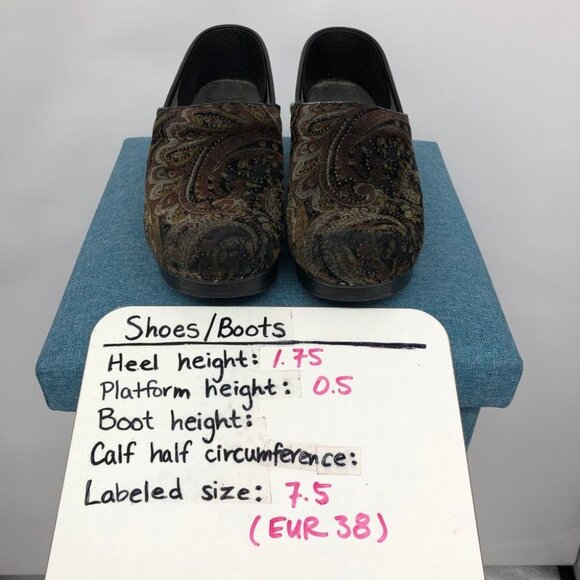 Shoes/Boots
Heel height: 1.75
Platform height: 0.5
Boot height:
Calf half circumference:
Labeled size: 7.5
(EUR 38)